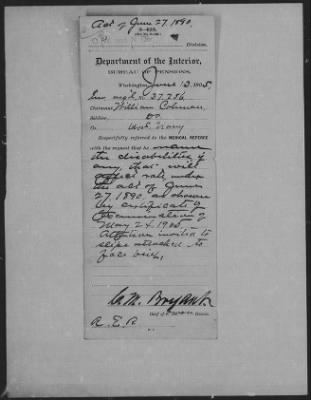 Act of June 27, 1890.
3-422.
Division.
Department of the Interior,
BUREAU OF PENSIONS,
Washington, June 13, 1905
No. 37.756
Claimant, William Coleman
Soldier, Do
Respectfully referred to the MEDICAL REFEREE
with the request that he name
the disabilities if
any that will
affect rate under
the act of June
27, 1890 as shown
by certificate of
examination of
May 24, 1905.
Attention invited to
slips attached to
face brief,
C. M. Bryant
Chief of Division.
R. E. R